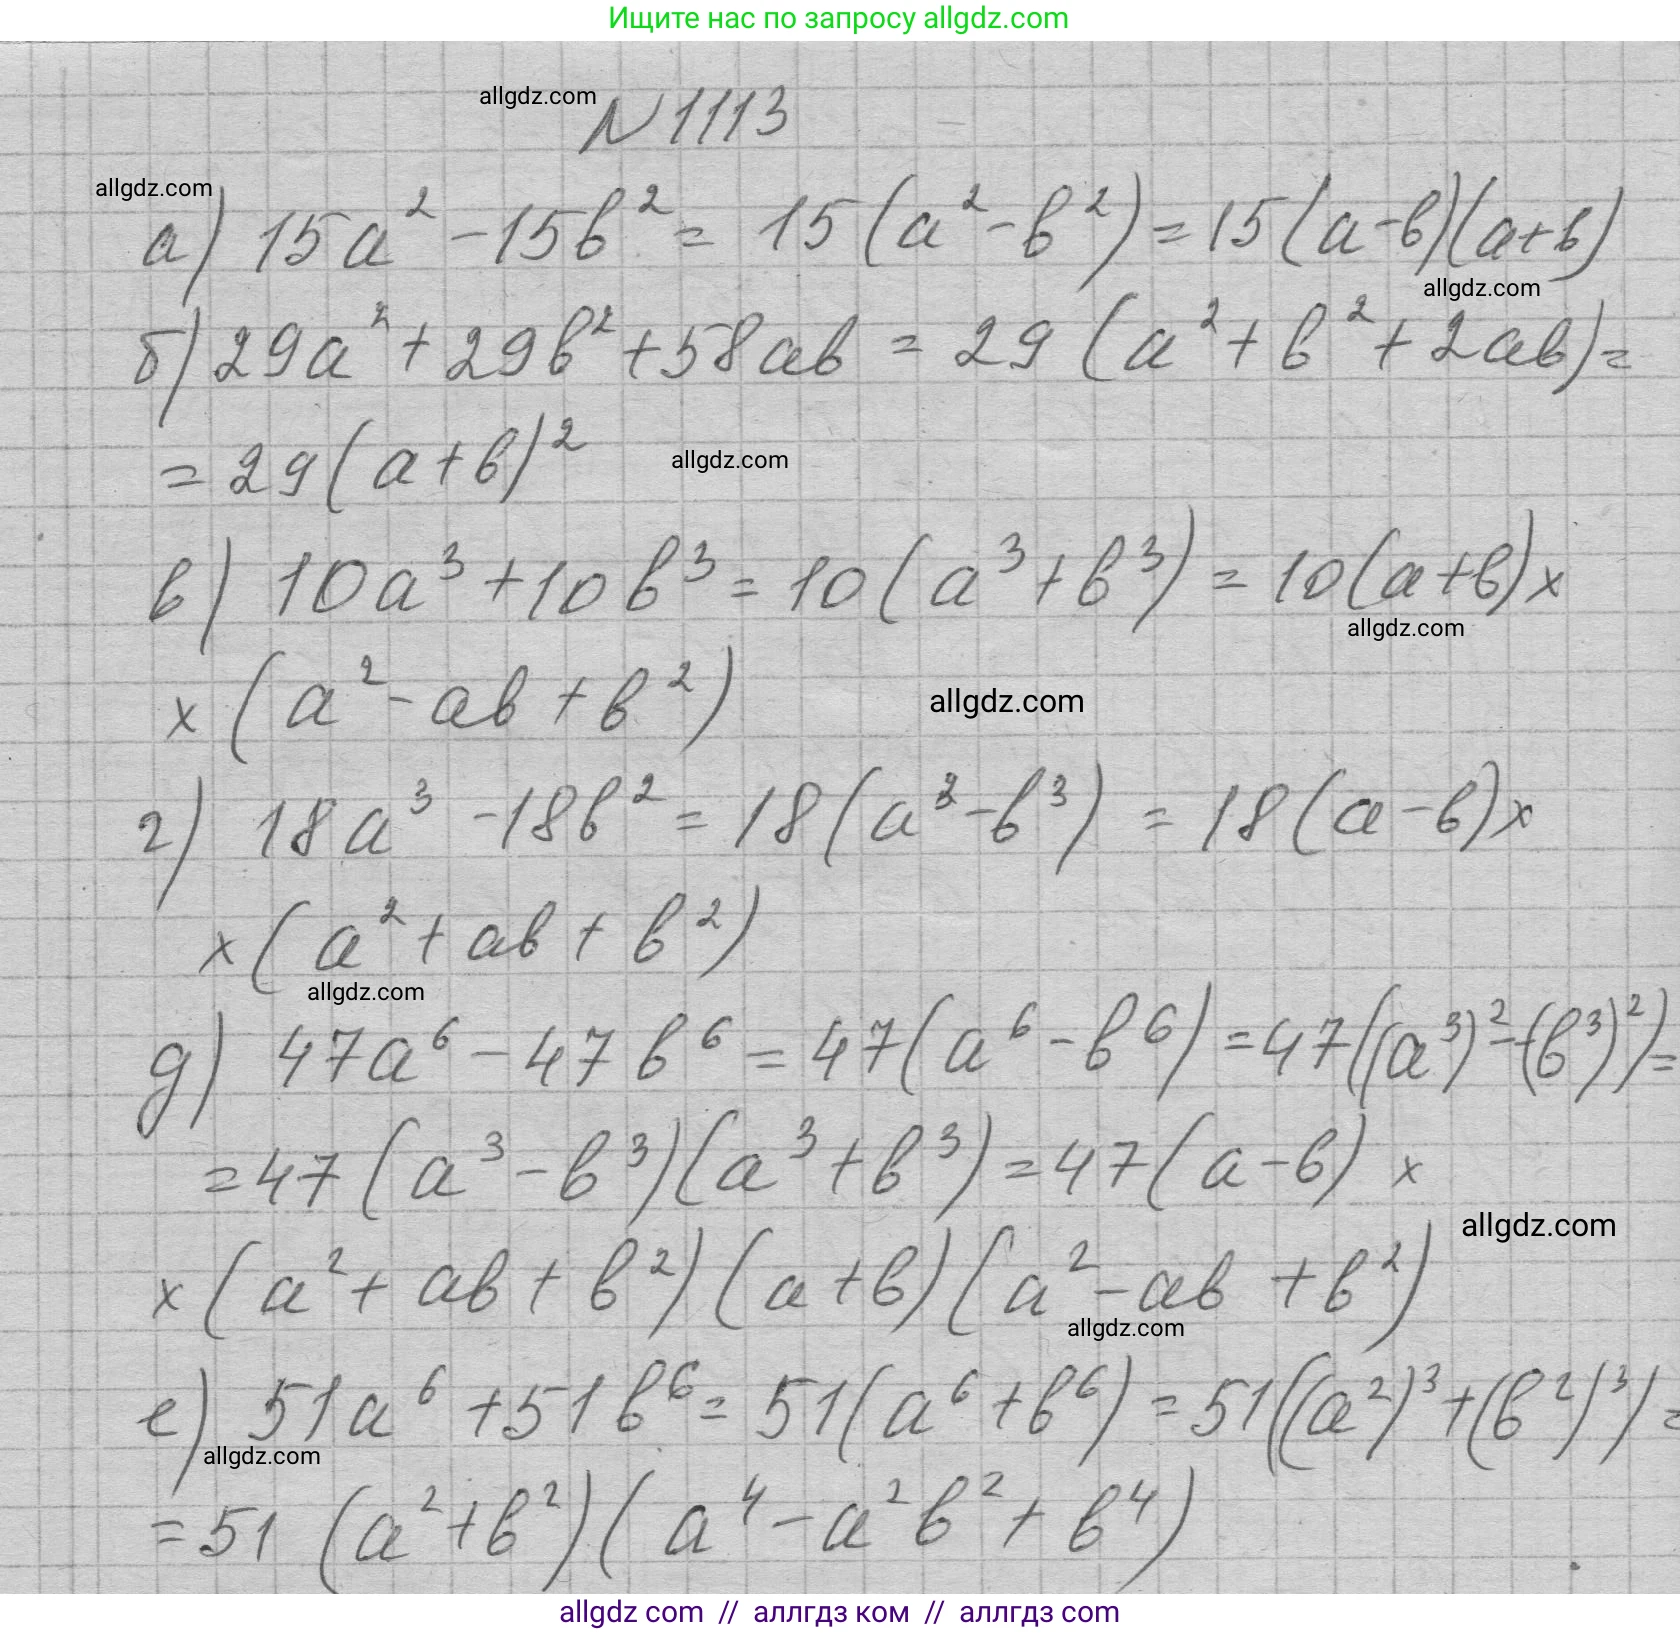 Ищите нас по запросу allgdz.com
allgdz.com
N 1113
allgdz.com
а) 15a² - 15b² = 15(a² - b²) = 15(a - b)(a + b)
allgdz.com
б) 29a² + 29b² + 58ab = 29(a² + b² + 2ab) =
= 29(a + b)²
allgdz.com
в) 10a³ + 10b³ = 10(a³ + b³) = 10(a + b) x
allgdz.com
x (a² - ab + b²)
allgdz.com
г) 18a³ - 18b² = 18(a³ - b³) = 18(a - b) x
x (a² + ab + b²)
allgdz.com
д) 47a⁶ - 47b⁶ = 47(a⁶ - b⁶) = 47((a³)² - (b³)²) =
= 47(a³ - b³)(a³ + b³) = 47(a - b) x
allgdz.com
x (a² + ab + b²)(a + b)(a² - ab + b²)
allgdz.com
е) 51a⁶ + 51b⁶ = 51(a⁶ + b⁶) = 51((a²)³ + (b²)³) =
allgdz.com
= 51(a² + b²)(a⁴ - a²b² + b⁴)
allgdz com // аллгдз ком // аллгдз com